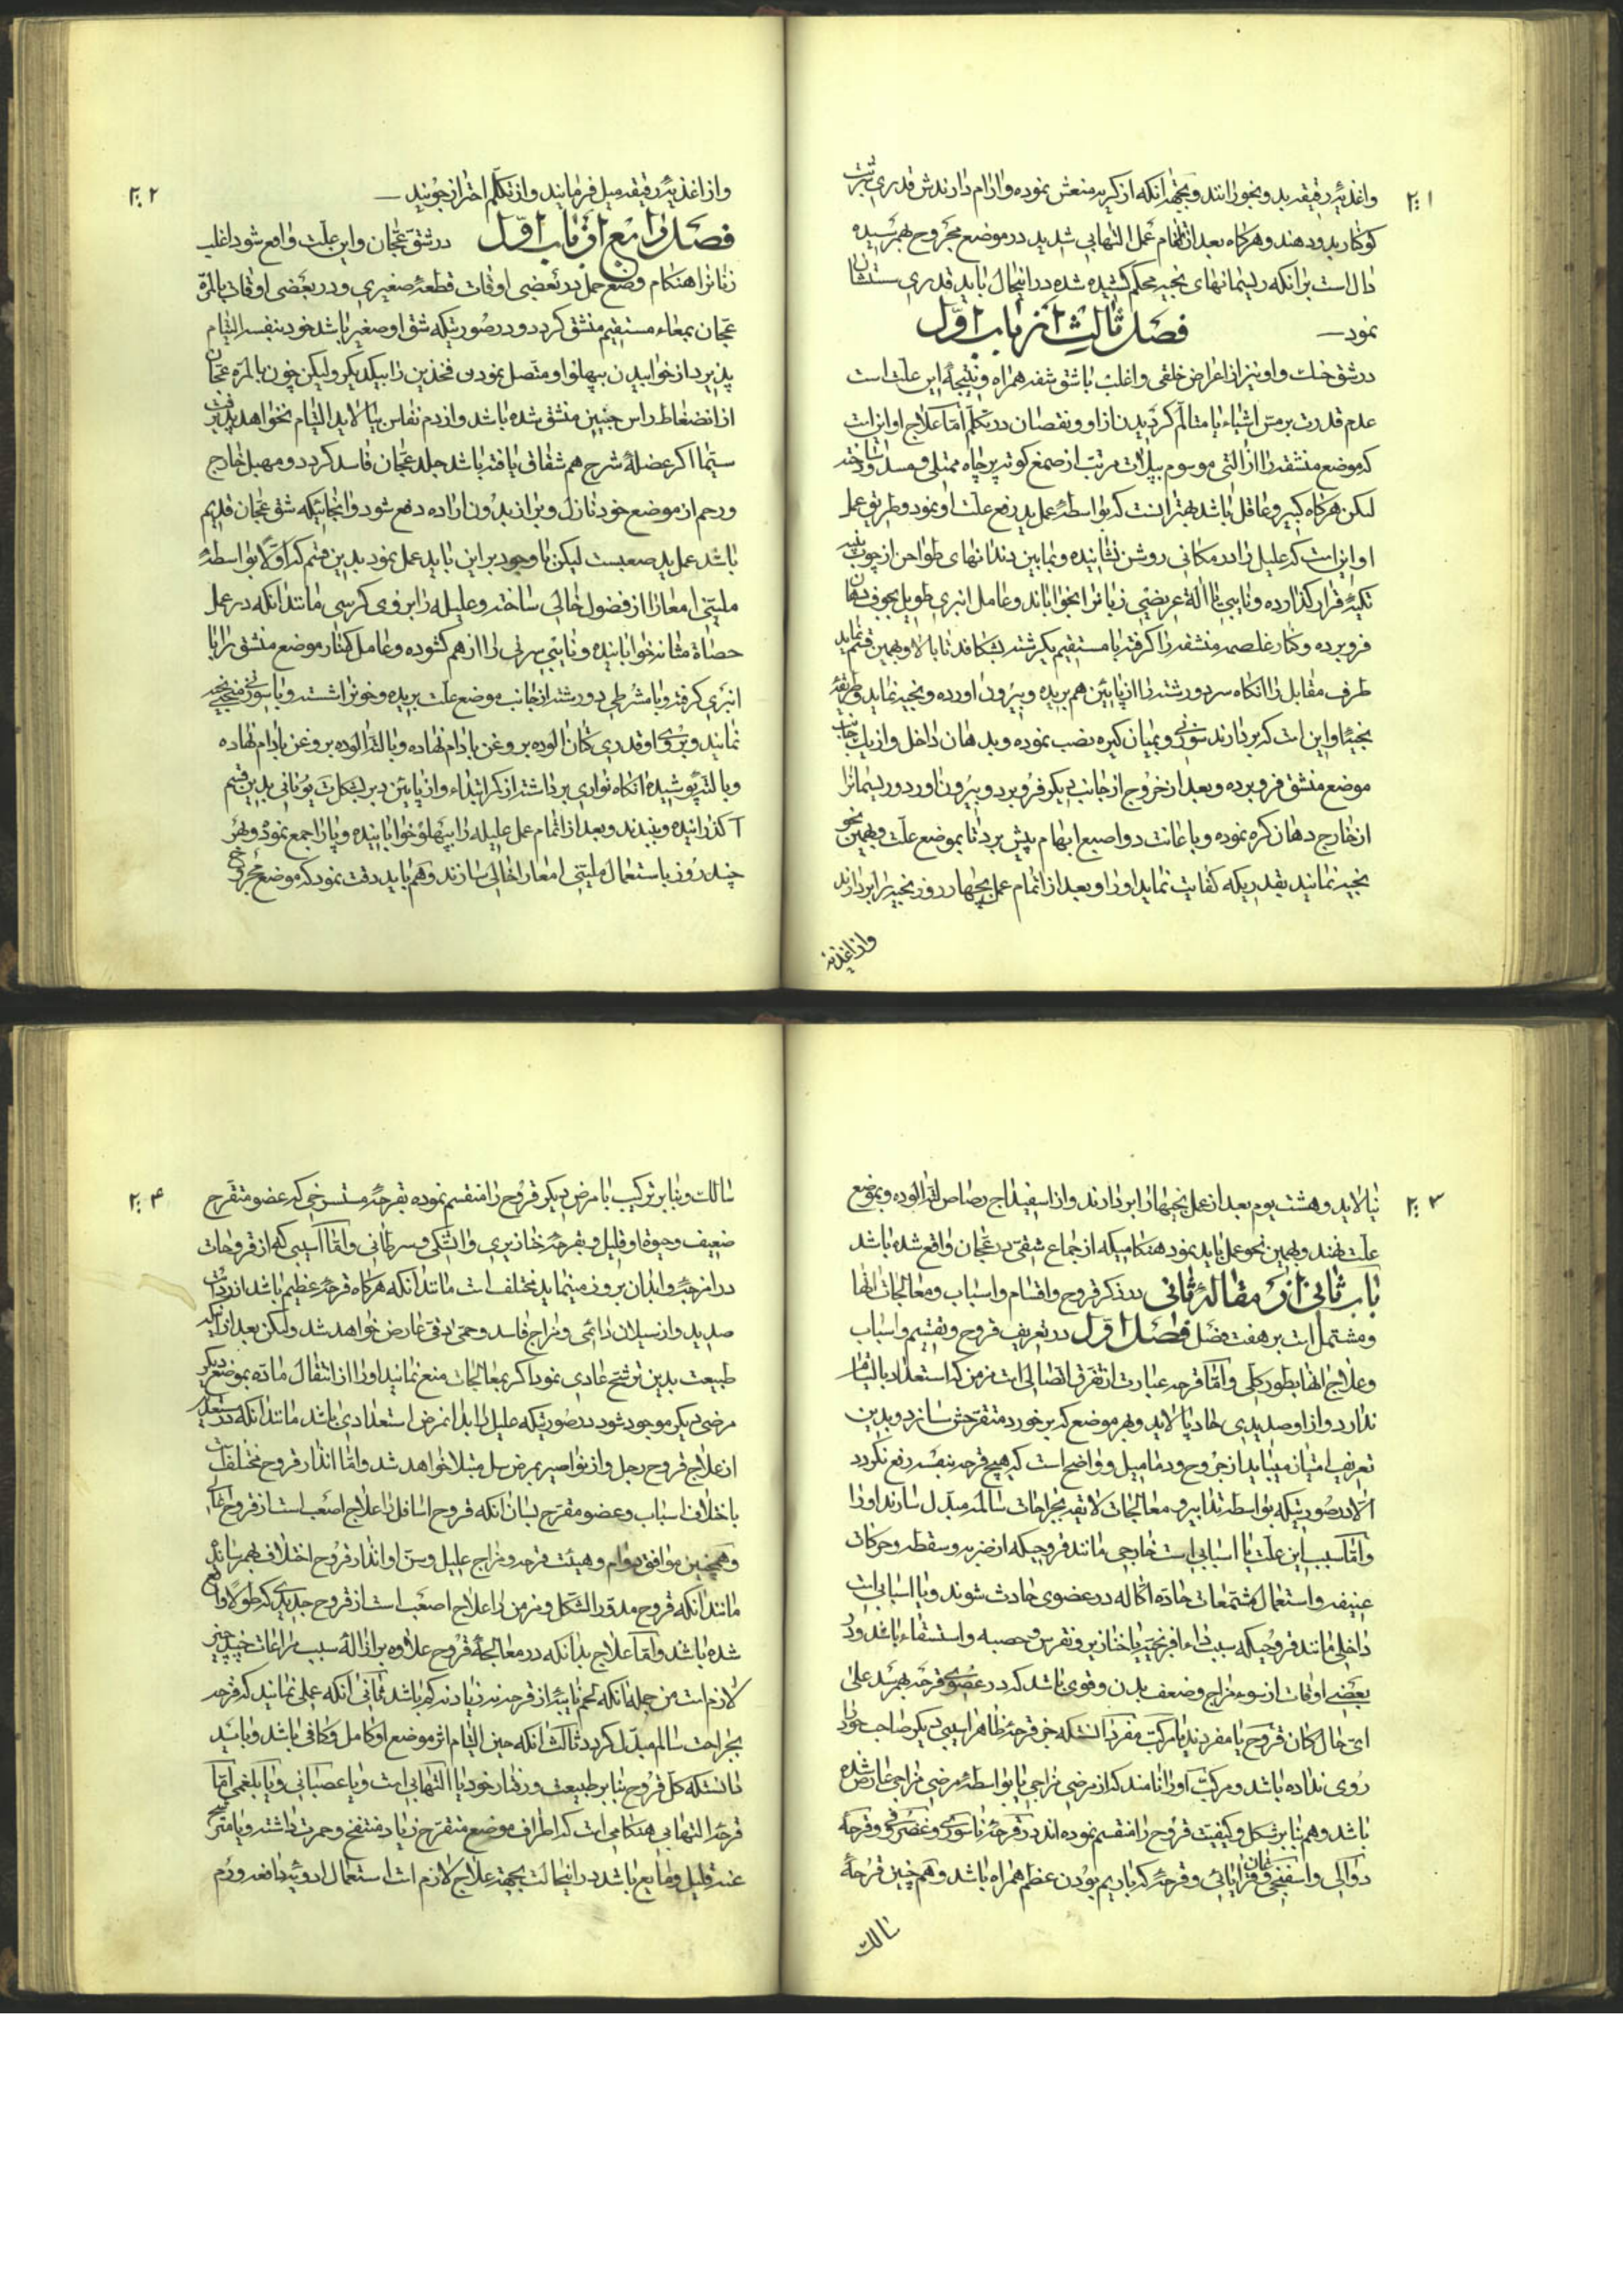 ۲۰۱
واغذیهٔ رقیقه بدو بخورانند و بجهة انکه از کریه منعش نموده وارام دارندش قدری شربت
کوکنار بدو دهند و هرکاه بعد از اتمام عمل التهابی شدید در موضع مجروح بهم رسیده
دال است برانکه ریسمانهای بخیه محکم کشیده شده در اینحال باید قدری سستشان
نمود
فصل ثالث از باب اول
در شق حنک و او نیز از اعراض خلقی و اغلب با شق شفه همراه و نتیجهٔ این علت است
عدم قدرت بر مس اشیاء یا متالم کردیدن از او و نقصان در تکلم اما علاج او این است
که موضع منشقه را از التی موسوم به پلات مرتب از صمغ کوته پرچاه ممتلی و مسدود ساخته
لیکن هرکاه کبیر و عاقل باشد بهتر انست که بواسطهٔ عمل ید رفع علت او نمود و طریق عمل
او این است که علیل را در مکانی روشن نشانیده و مابین دندانهای طواحن از چوب پنبه
تکیهٔ قرار کذارده و نایبی با الة عریضی زبانرا بخواباند و عامل انبری طویل بجوف دهان
فرو برده و کنار غلصمه منشقه را کرفته با مستقیم بکر شته بشکافد تا بالا و بهمین قسم نماید
طرف مقابل را انکاه سر دو رشته را از پایین هم بریده و بیرون اورده و بخیه نماید و طریقهٔ
بخیهٔ او این است که بردارند سوزنی و بمیان کیره نصب نموده و بدهان داخل و از یک جانب
موضع منشق فرو برده و بعد از خروج از جانب دیکر فرو برد و بیرون اورد و ریسمانرا
از خارج دهان کره نموده و باعانت دو اصبع ابهام پیش برد تا بموضع علت و بهمین نحو
بخیه نمایند بقدریکه کفایت نماید او را و بعد از اتمام عمل بچهار روز بخیه را بردارند
واز اغذیه
۲۰۲
و از اغذیهٔ رقیقه میل فرمایند و از تکلم احتراز جویند
فصل رابع از باب اول در شق عجان و این علت واقع شود اغلب
زنانرا هنکام وضع حمل در بعضی اوقات قطعهٔ صغیری و در بعضی اوقات بالمرة
عجان بمعاء مستقیم منشق کردد و در صورتیکه شق او صغیر باشد خود بنفسه التیام
پذیرد از خوابیدن بپهلو او متصل نمودن فخذین را بیکدیکر ولیکن چون بالمره عجان
از انضغاط راس جنین منشق شده باشد و از دم نفاس بیالاید التیام نخواهد پذیرفت
سیما اکر عضلهٔ شرج هم شقاق یافته باشد جلد عجان فاسد کردد و مهبل خارج
و رحم از موضع خود نازل و براز بدون اراده دفع شود و انجائیکه شق عجان قدیم
باشد عمل ید صعبست لیکن با وجود بر این باید عمل نمود بدین قسم که اولا بواسطهٔ
ملینی امعا را از فضول خالی ساخته و علیله را بر روی کرسی مانند انکه در عمل
حصاة مثانه خوابانیده و نایبی سرتی را از هم کشوده و عامل کنار موضع منشق را با
انبری کرفته و با مشرطی دو رشته از جانب موضع علت بریده و خونرا شسته و با سوزنی منحنی بخیه
نمایند و بر روی او قدری کتان الوده بروغن بادام نهاده و یا لتهٔ الوده بروغن بادام نهاده
و با لته پوشیده انکاه نواری برداشته از کمر ابتداء و از پایین دبر بشکل ت یونانی بدین قسم
T کذرانیده و ببندند و بعد از اتمام عمل علیله را بپهلو خوابانیده و پا را جمع نمود و بهر
چند روز باستعمال ملینی امعا را خالی سازند و هم باید دقت نمود که موضع مجروح
۲۰۳
نیالاید و هشت یوم بعد از عمل بخیها را بردارند و از اسفیداج رصاص لته را الوده و بموضع
علت نهند و بهمین نحو عمل باید نمود هنکامیکه از جماع شقی در عجان واقع شده باشد
باب ثانی از مقالهٔ ثانی در ذکر قروح و اقسام و اسباب و معالجات انها
و مشتمل است بر هفت فصل فصل اول در تعریف قروح و تقسیم و اسباب
و علاج انها بطور کلی و اما قرحه عبارت از تفرق اتصالی است مزمن که استعداد بالتیام
ندارد و از او صدیدی حاد پالاید و بهر موضع که برخورد متقرحش سازد و بدین
تعریف امتیاز مییابد از جروح و دمامیل و واضح است که هیچ قرحه بنفسه رفع نکردد
الا در صورتیکه بواسطه تدابیر و معالجات لایقه بجراحات سالمه مبدل سازند او را
و اما سبب این علت یا اسبابی است خارجی مانند قروحیکه از ضربه و سقطه و حرکات
عنیفه و استعمال مشتمعات حاده اکاله در عضوی حادث شوند و یا اسبابی است
داخلی مانند قروحیکه سبب داء افرنجیه یا خنازیر و نقرس و حصبه و استسقاء باشد و در
بعضی اوقات از سوء مزاج و ضعف بدن و قوی باشد که در عضوی قرحه بهم رسد علی
ای حال کان قروح یا مفردند یا مرکب مفرد انستکه جز قرحهٔ ظاهر اسیبی دیکر صاحب خود را
روی نداده باشد و مرکب او را نامند که از مرضی مزاجی یا بواسطهٔ مرضی مزاجی عارض شده
باشد و هم بنا بر شکل و کیفیت قروح را منقسم نموده اند در قرحهٔ ناسوری و غضروفی و قرحهٔ
دوالی و اسفنجی و قانقرایائی و قرحهٔ که با ریم بودن عظم همراه باشد و هم چنین قرحهٔ
سالک
۲۰۴
سالک و بنا بر ترکیب با مرض دیکر قروح را منقسم نموده بقرحهٔ مستسرخی که عضو متقرح
ضعیف و حیوة او قلیل و بقرحهٔ خنازیری و اتشکی و سرطانی و اما اسیبی که از قروحات
در امزجهٔ و ابدان بروز مینماید مختلف است مانند انکه هرکاه قرحهٔ عظیم باشد از زردیت
صدید و از سیلان دائمی و مزاج فاسد و حمی دقی عارض خواهد شد ولیکن بعد از انکه
طبیعت بدین ترشح عادی نمود اکر بمعالجات منع نمایند او را از انتقال ماده بموضع دیکر
مرضی دیکر موجود شود در صورتیکه علیل را بدانمرض استعدادی باشد مانند انکه در مستعد
از علاج قروح رجل و از نواصیر بمرض سل مبتلا خواهد شد و اما انذار قروح مختلف است
باختلاف اسباب و عضو مقرح بسان انکه قروح اسافل را علاج اصعب است از قروح اعالی
و همچنین موافق دوام و هیئت قرحه و مزاج علیل و سن او انذار قروح اختلاف بهم رساند
مانند انکه قروح مدور الشکل و مزمن را علاج اصعب است از قروح جدید که طولا واقع
شده باشد و اما علاج بدانکه در معالجهٔ قروح علاوه بر ازالهٔ سبب مراعات چند چیز
لازم است من جمله انکه لحم نابته از قرحه نه زیاد نه کم باشد ثانی انکه عملی نمایند که قرحه
بجراحت سالم مبدل کردد ثالث انکه حین التیام اثر موضع او کامل و کافی باشد و باید
دانستکه کل قروح بنا بر طبیعت و رفتار خود یا التهابی است و یا عصبانی و یا بلغمی اما
قرحهٔ التهابی هنکامی است که اطراف موضع متقرح زیاد منتفخ و حمرت داشته و یا مترشح
عنه قلیل و مایع باشد در اینحالت بجهة علاج لازم است استعمال ادویهٔ دافعه ورم